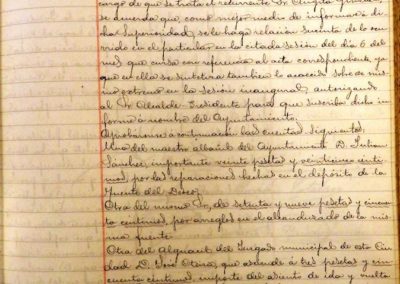 cargo de que se trata el recurrente Sr. Angita
se acuerda que, como mejor medio de informar a di-
cha Superioridad, se le haga relación sucinta de lo o-
currido en el particular en la citada sesión del día 6 del
mes que cursa con referencia al acta correspondiente, ya
que en ella se sintetiza tambien lo acaecido sobre el mis-
mo extremo en la sesión inaugural; autorizando
al Sr. Alcalde Presidente para que suscriba dicho in-
forme a nombre del Ayuntamiento;
Aprobáronse a continuación las cuentas siguientes;
Una del maestro albañil del Ayuntamiento D. Julian
Sánchez, importante veinte pesetas y veinticinco cénti-
mos, por las reparaciones hechas en el depósito de la
Fuente del
Otra del mismo Sr. de setenta y nueve pesetas y cincuen-
ta céntimos, por arreglos en el alcantarillado de la mis-
ma fuente.
Otra del Alguacil del Juzgado municipal de esta Ciu-
dad D. José Otero, que asciende á tres pesetas y cin-
cuenta céntimos, importe del asiento de ida y vuelta